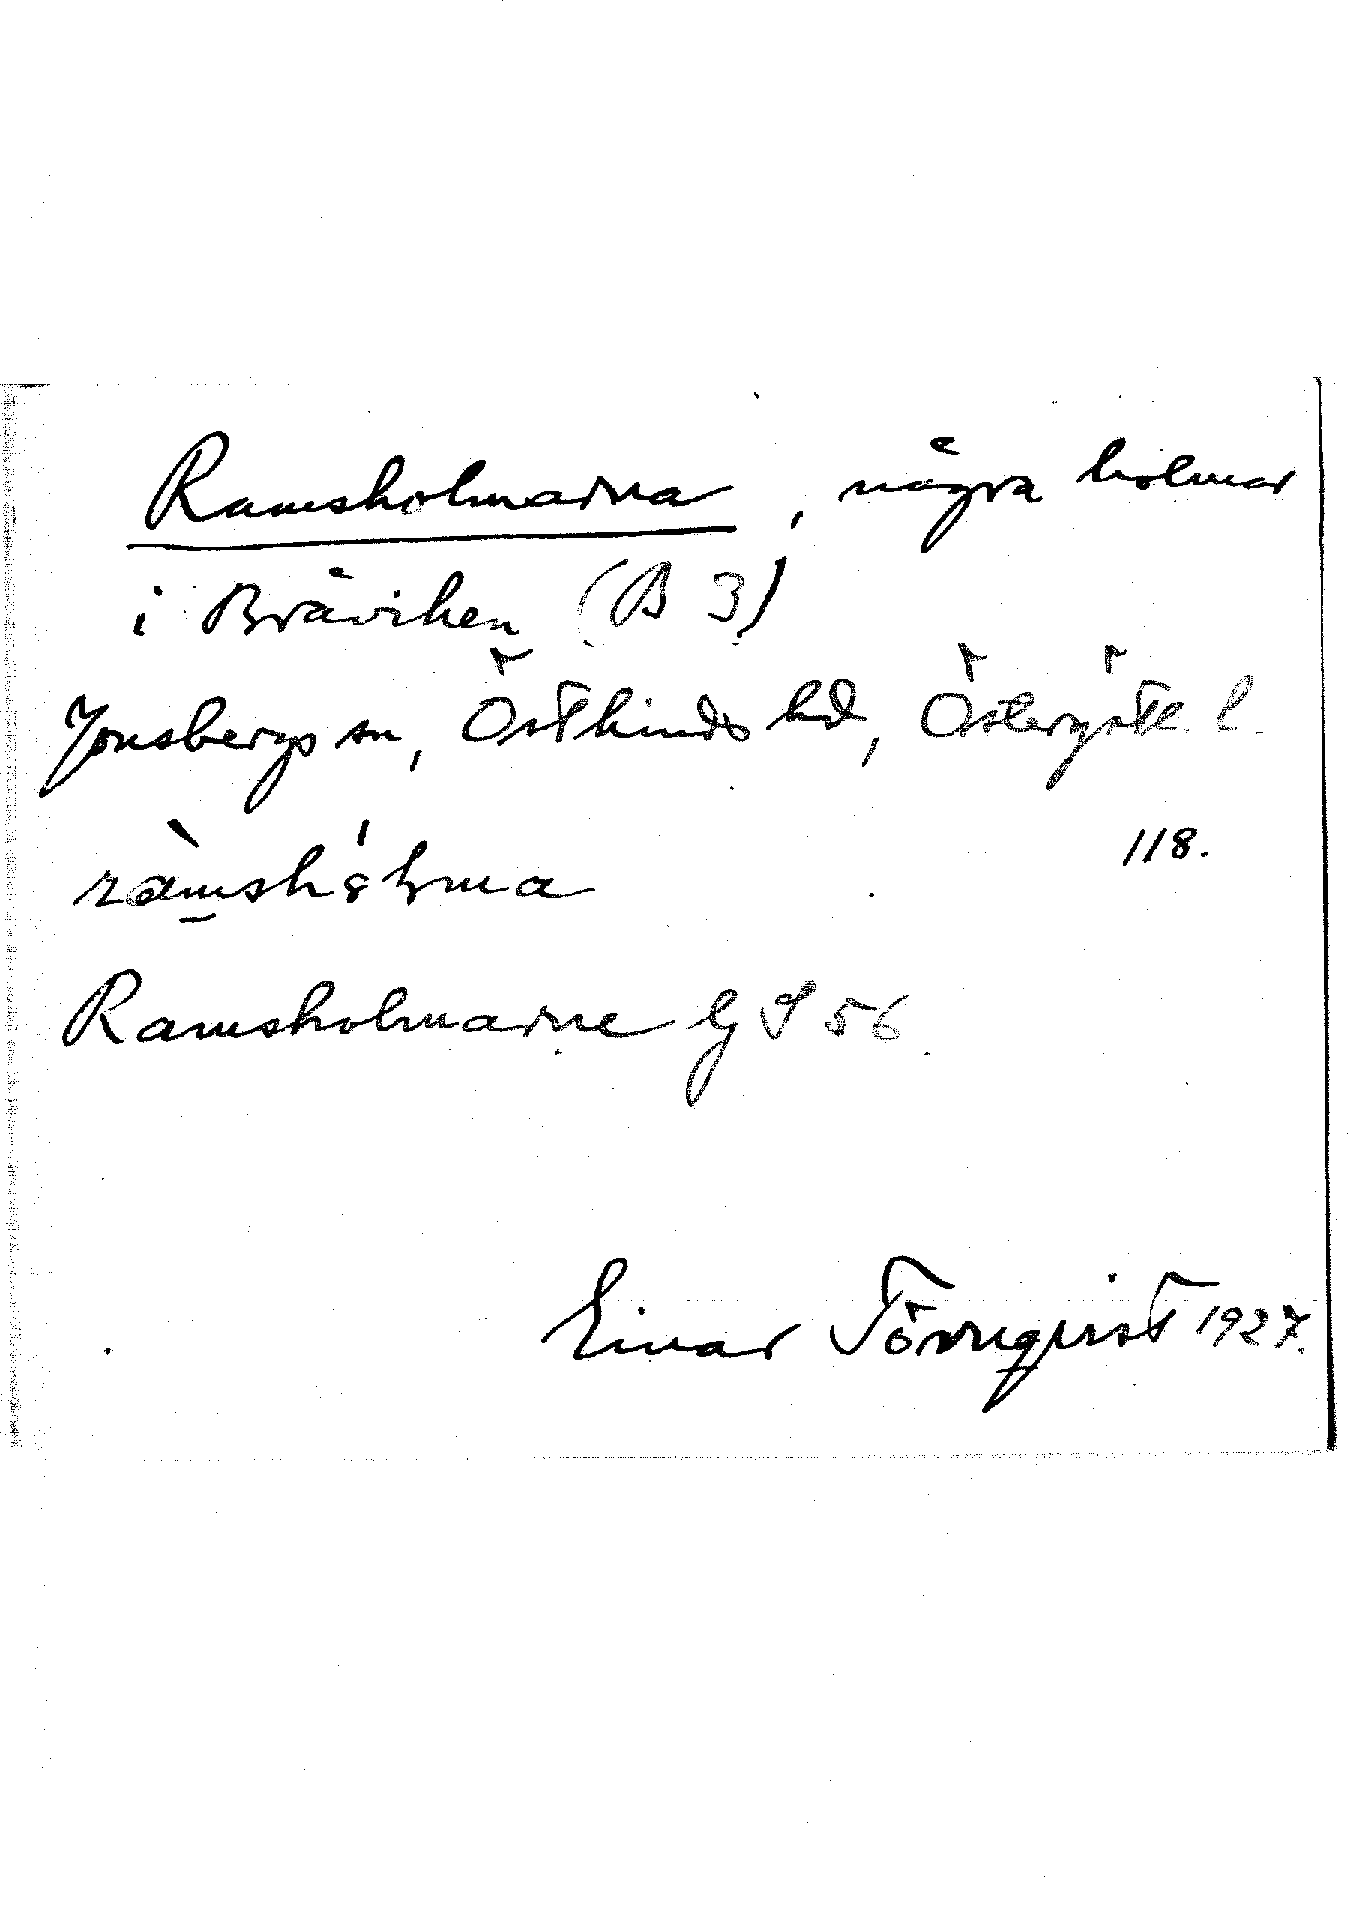 Ramsholmarna, några holmar
i Bråviken (B 3)
Jonsbergs sn, Östkinds hd, Östergötl. l.
118.
ràmshólma
Ramsholmarne GS 56
Einar Törnqvist 1927.